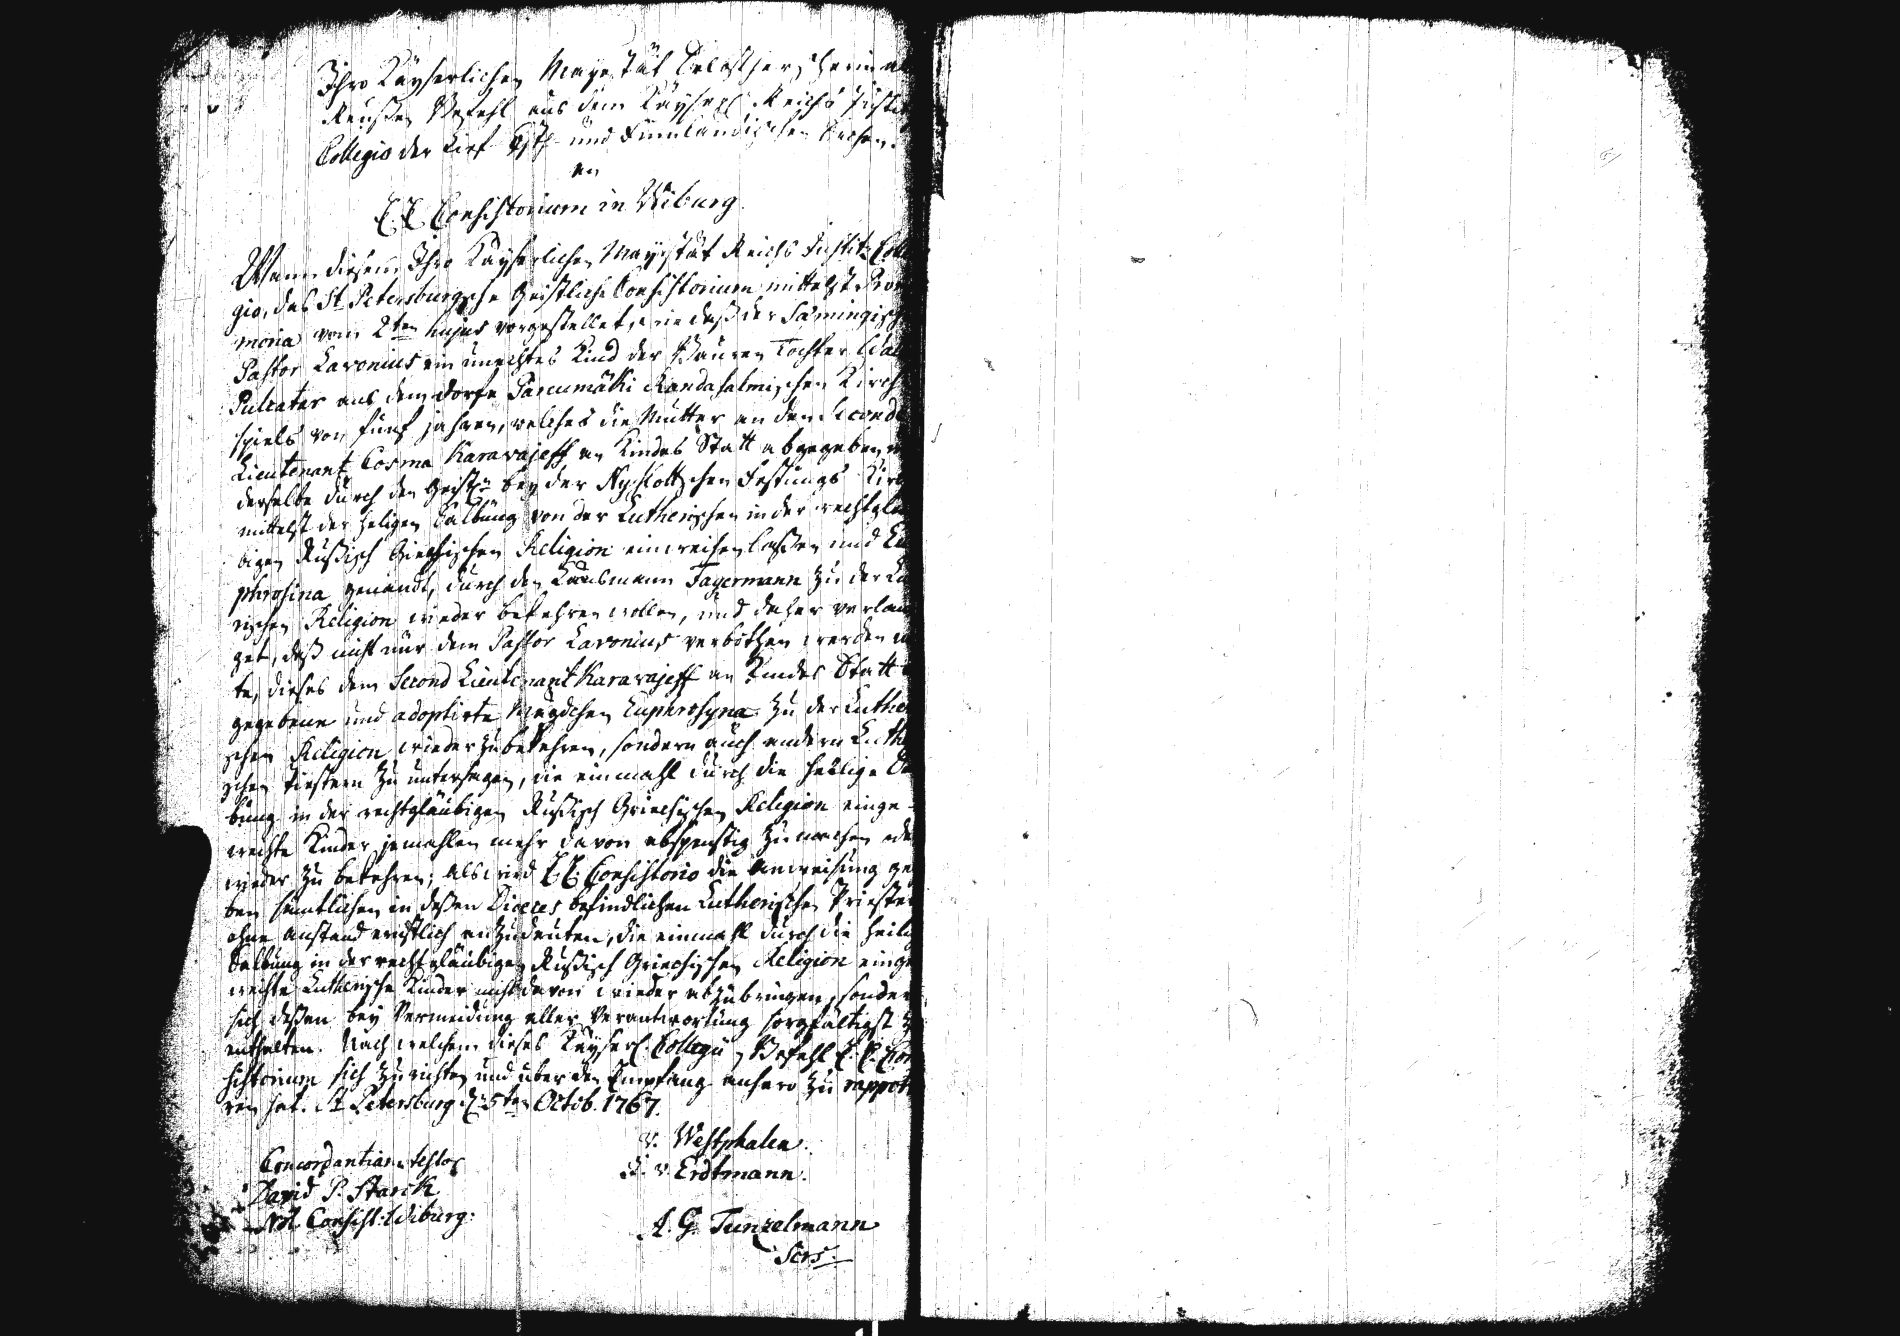 Ihro Kayserlichen Mayestät Selbstherrscherin al
Reußen Befehl aus dem Kayserl. Reichs Justi
Collegio der Lief- Ehst- und Finnländischen Sachen.
an
E. E. Consistorium in Wiburg.
Wann diesem Ihro Kayserlichen Mayestät Reichs Justitz Colle
gio, das St. Petersburgsche Geistliche Consistorium mittelst Prom
moria vom 2ten hujus vorgestellet, wie daß der Sämingisch
Pastor Lavonius ein unechtes Kind der Bauren Tochter
Pulcatar aus dem Dorfe Parcumäki Randasalmischen Kirch
spiels von fünf jahren, welches die Mutter an den Second
Lieutenant Cosma Karavajeff an Kindes Statt abgegeben
derselbe durch den Geistl. bey der Nyslottschen Festungs Kirc
mittelst der heiligen Salbung von der Lutherischen in der rechtglä
bigen Rußisch Griechischen Religion einweihen laßen und Eu
phrosina genandt, durch den Landsmann Fagermann zu der Lu
rischen Religion wieder bekehren wollen, und daher verlan
get, daß nicht nur dem Pastor Lavonius verbothen werden
te, dieses dem Second Lieutenant Karavajeff an Kindes Statt
gegebene und adoptirte Mägdchen Euphrosyna zu der Luther
schen Religion wieder zu bekehren, sondern auch andern Luthe
schen Priestern zu untersagen, die einmahl durch die heilige Sa
bung in der rechtgläubigen Rußisch Griechischen Religion einge-
weihte Kinder jemahlen mehr davon abspenstig zu machen ode
wieder zu bekehren; als wird E. E. Consistorio die Anweisung ge
ben sämtlichen in deßen Dioeces befindlichen Lutherischen Priester
ohne Anstand ernstlich anzudeuten, die einmahl durch die heilig
Salbung in der rechtgläubigen Rußisch Griechischen Religion einge
weihte Lutherische Kinder nicht davon wieder abzubringen, sonder
sich deßen bey Vermeidung aller Verantwortung sorgfältigst z
enthalten. Nach welchem dieses Kayserl. Collegii Befehl E. E. Con
sistorium sich zu richten und über den Empfang anhero zu rapport
ren hat. St. Petersburg d. 5ten Octob. 1767.
v. Westphalen.
v. Erdtmann.
Concordantiam testor
David P. Starck
Not. Consist: Wiburg:
A. G. Tunzelmann
Scrs.